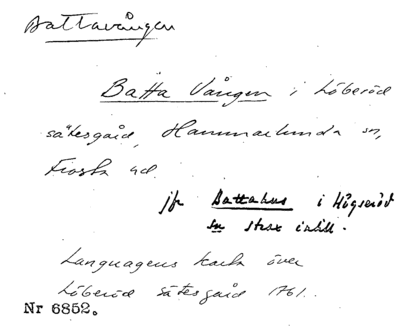 Battavången
Batta Vången i Löberöd
sätesgård, Hammarlunda sn,
Frosta hd.
jfr Battahus i Högseröd
sn strax intill.
Languagens karta över
Löberöd sätesgård 1761..
Nr 6852.